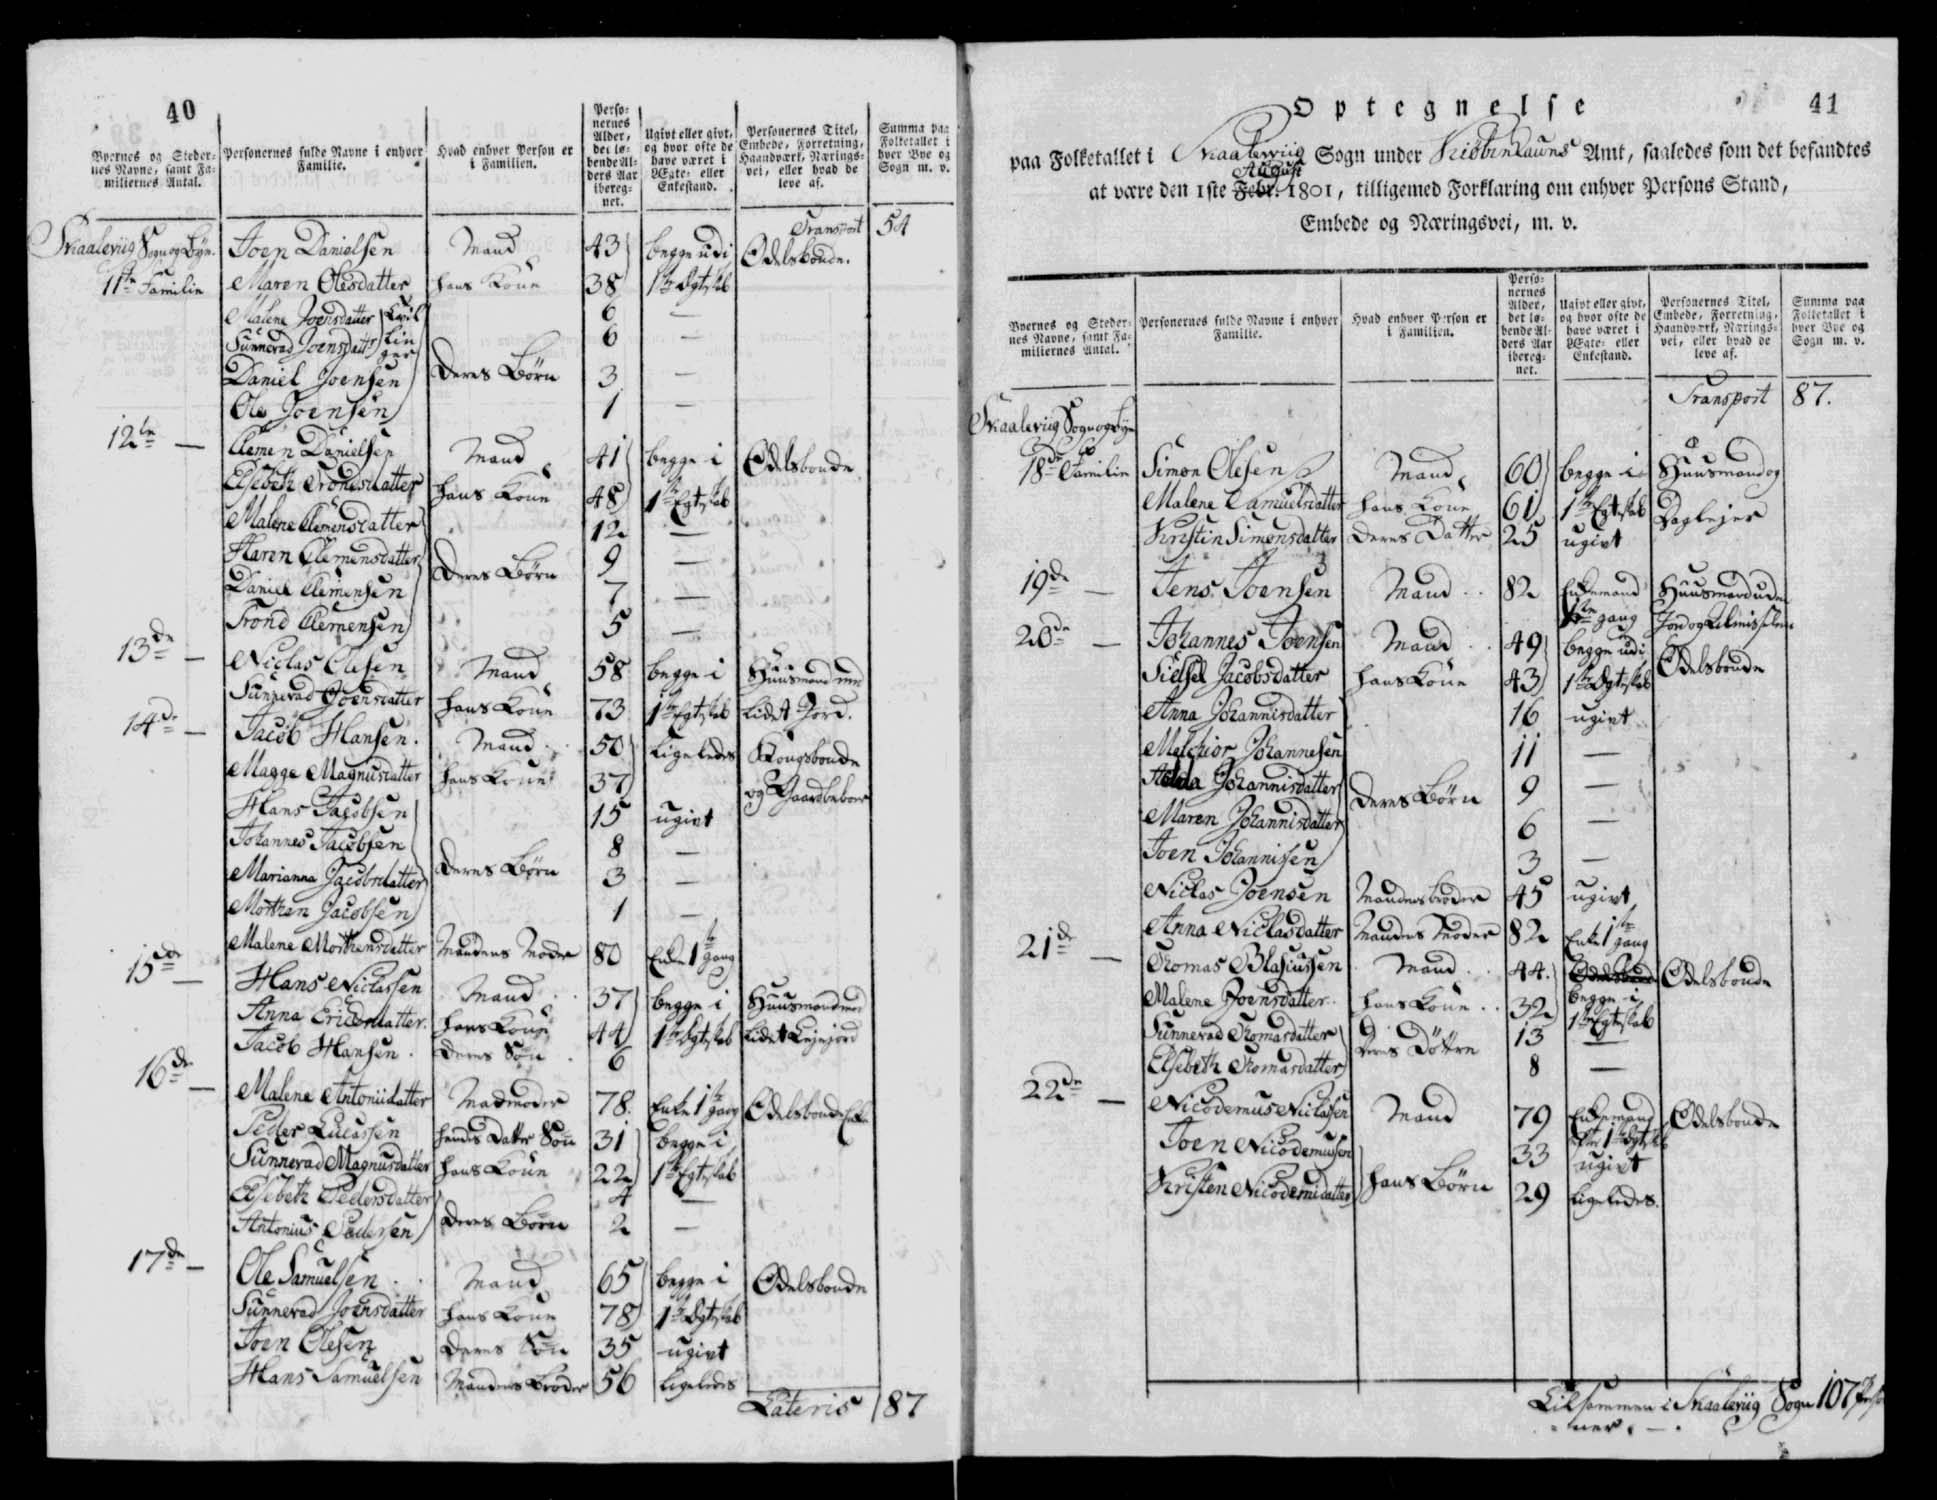 40
Byernes og Steder-
nes Navne, samt Fa-
miliernes Antal.
Personernes fulde Navne i enhver
Familie.
Hvad enhver Person er
i Familien.
Perso-
nernes
Alder,
det lø-
bende Al-
ders Aar
ibereg-
net.
Ugivt eller givt,
og hvor ofte de
have været i
Ægte- eller
Enkestand.
Personernes Titel,
Embede, Forretning,
Haandværk, Nærings-
vei, eller hvad de
leve af.
Summa paa
Folketallet i
hver Bye og
Sogn m. v.
Transport 54
Skaaleviig Sogn og Byen. Joen Danielsen Mand 43 begge udi Odelsbonde.
11te Familie Maren Olesdatter hans Kone 38 1te Egteskab
Malene Joensdatter Tvil 6 —
Sunnevad Joensdatter lin 6 —
ger
Daniel Joensen deres Børn 3 —
Ole Joensen 1 —
12te — Clemen Danielsen Mand 41 begge i Odelsbonde
Elsebeth Trondsdatter hans Kone 48 1te Egteskab
Malene Clemensdatter 12 —
Karen Clemensdatter 9 —
deres Børn
Daniel Clemensen 7 —
Trond Clemensen 5 —
13de — Niclas Olesen Mand 58 begge i Huusmand med
Sunnevad Joensdatter hans Kone 73 1te Egteskab lidet Jord.
14de — Jacob Hansen. Mand 50 ligeledes Kongsbonde
Magge Magnusdatter hans Kone 37 og Gaardbeboer
Hans Jacobsen 15 ugivt
Johannes Jacobsen 8 —
Marianna Jacobsdatter deres Børn 3 —
Morthen Jacobsen 1 —
Malene Morthensdatter Mandens Moder 80 Enke 1te gang
15de — Hans Niclassen Mand 37 begge i Huusmand med
Anna Ericsdatter. hans Kone 44 1te Egteskab lidet Leyejord
Jacob Hansen. deres Søn 6
16de — Malene Antoniidatter Madmoder 78. Enke 1te gang Odelsbonde Enke
Peder Lucassen hendes Datter Søn 31 begge i
Sunnevad Magnusdatter hans Kone 22 1te Egteskab
Elsebeth Pedersdatter 4 —
Antonius Pedersen deres Børn 2 —
17de — Ole Samuelsen Mand 65 begge i Odelsbonde
Sunnevad Joensdatter hans Kone 78 1te Egteskab
Joen Olesen deres Søn 35 ugivt
Hans Samuelsen Mandens Broder 56 ligeledes
Lateris 87
41
Optegnelse
paa Folketallet i Skaaleviig Sogn under Kiøbenhauns Amt, saaledes som det befandtes
August
at være den 1ste Febr. 1801, tilligemed Forklaring om enhver Persons Stand,
Embede og Næringsvei, m. v.
Byernes og Steder-
nes Navne, samt Fa-
miliernes Antal.
Personernes fulde Navne i enhver
Familie.
Hvad enhver Person er
i Familien.
Perso-
nernes
Alder,
det lø-
bende Al-
ders Aar
ibereg-
net.
Ugivt eller givt,
og hvor ofte de
have været i
Ægte- eller
Enkestand.
Personernes Titel,
Embede, Forretning,
Haandværk, Nærings-
vei, eller hvad de
leve af.
Summa paa
Folketallet i
hver Bye og
Sogn m. v.
Transport 87.
Skaaleviig Sogn og Bye
18de Familie Simon Olesen Mand 60 begge i Huusmand og
Malene Samuelsdatter hans Kone 61 1te Egteskab Daglejer
Kristin Simonsdatter deres Datter 25 ugivt
19de — Jens Joensen Mand 82 Enkemand Huusmand uden
1te gang Jord og
20de — Johannes Joensen Mand 49 begge udi Odelsbonde
Sielsel Jacobsdatter hans Kone 43 1te Egteskab
Anna Johannisdatter 16 ugivt
Melchior Johannesen 11 —
Johannisdatter deres Børn 9 —
Maren Johannisdatter 6 —
Joen Johannisen 3 —
Niclas Joensen Mandens broder 45 ugivt
Anna Niclasdatter Mandens Moder 82 Enke 1te gang
21de — Thomas Blasiussen Mand 44. Odelsbonde Odelsbonde
Malene Joensdatter hans Kone 32 begge i
1te Egteskab
Sunnevad Thomasdatter deres Døttre 13 —
Elsebeth Thomasdatter 8 —
22de — Nicodemus Niclassen Mand 79 Enkemand Odelsbonde
efter 1te Egteskab
Joen Nicodemussen 33 ugivt
Kristen Nicodemidatter hans Børn 29 ligeledes.
Tilsammen i Skaaleviig Sogn 107 Perso
ner.